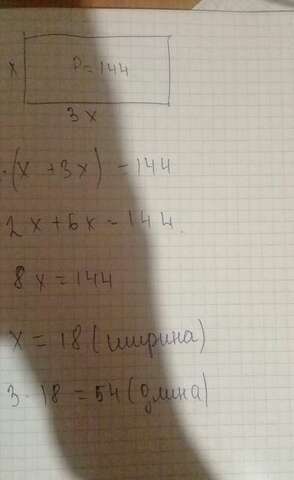 x P=144
3x
·(x+3x)=144
2x+6x=144.
8x=144
x=18(ширина)
3·18=54(длина)